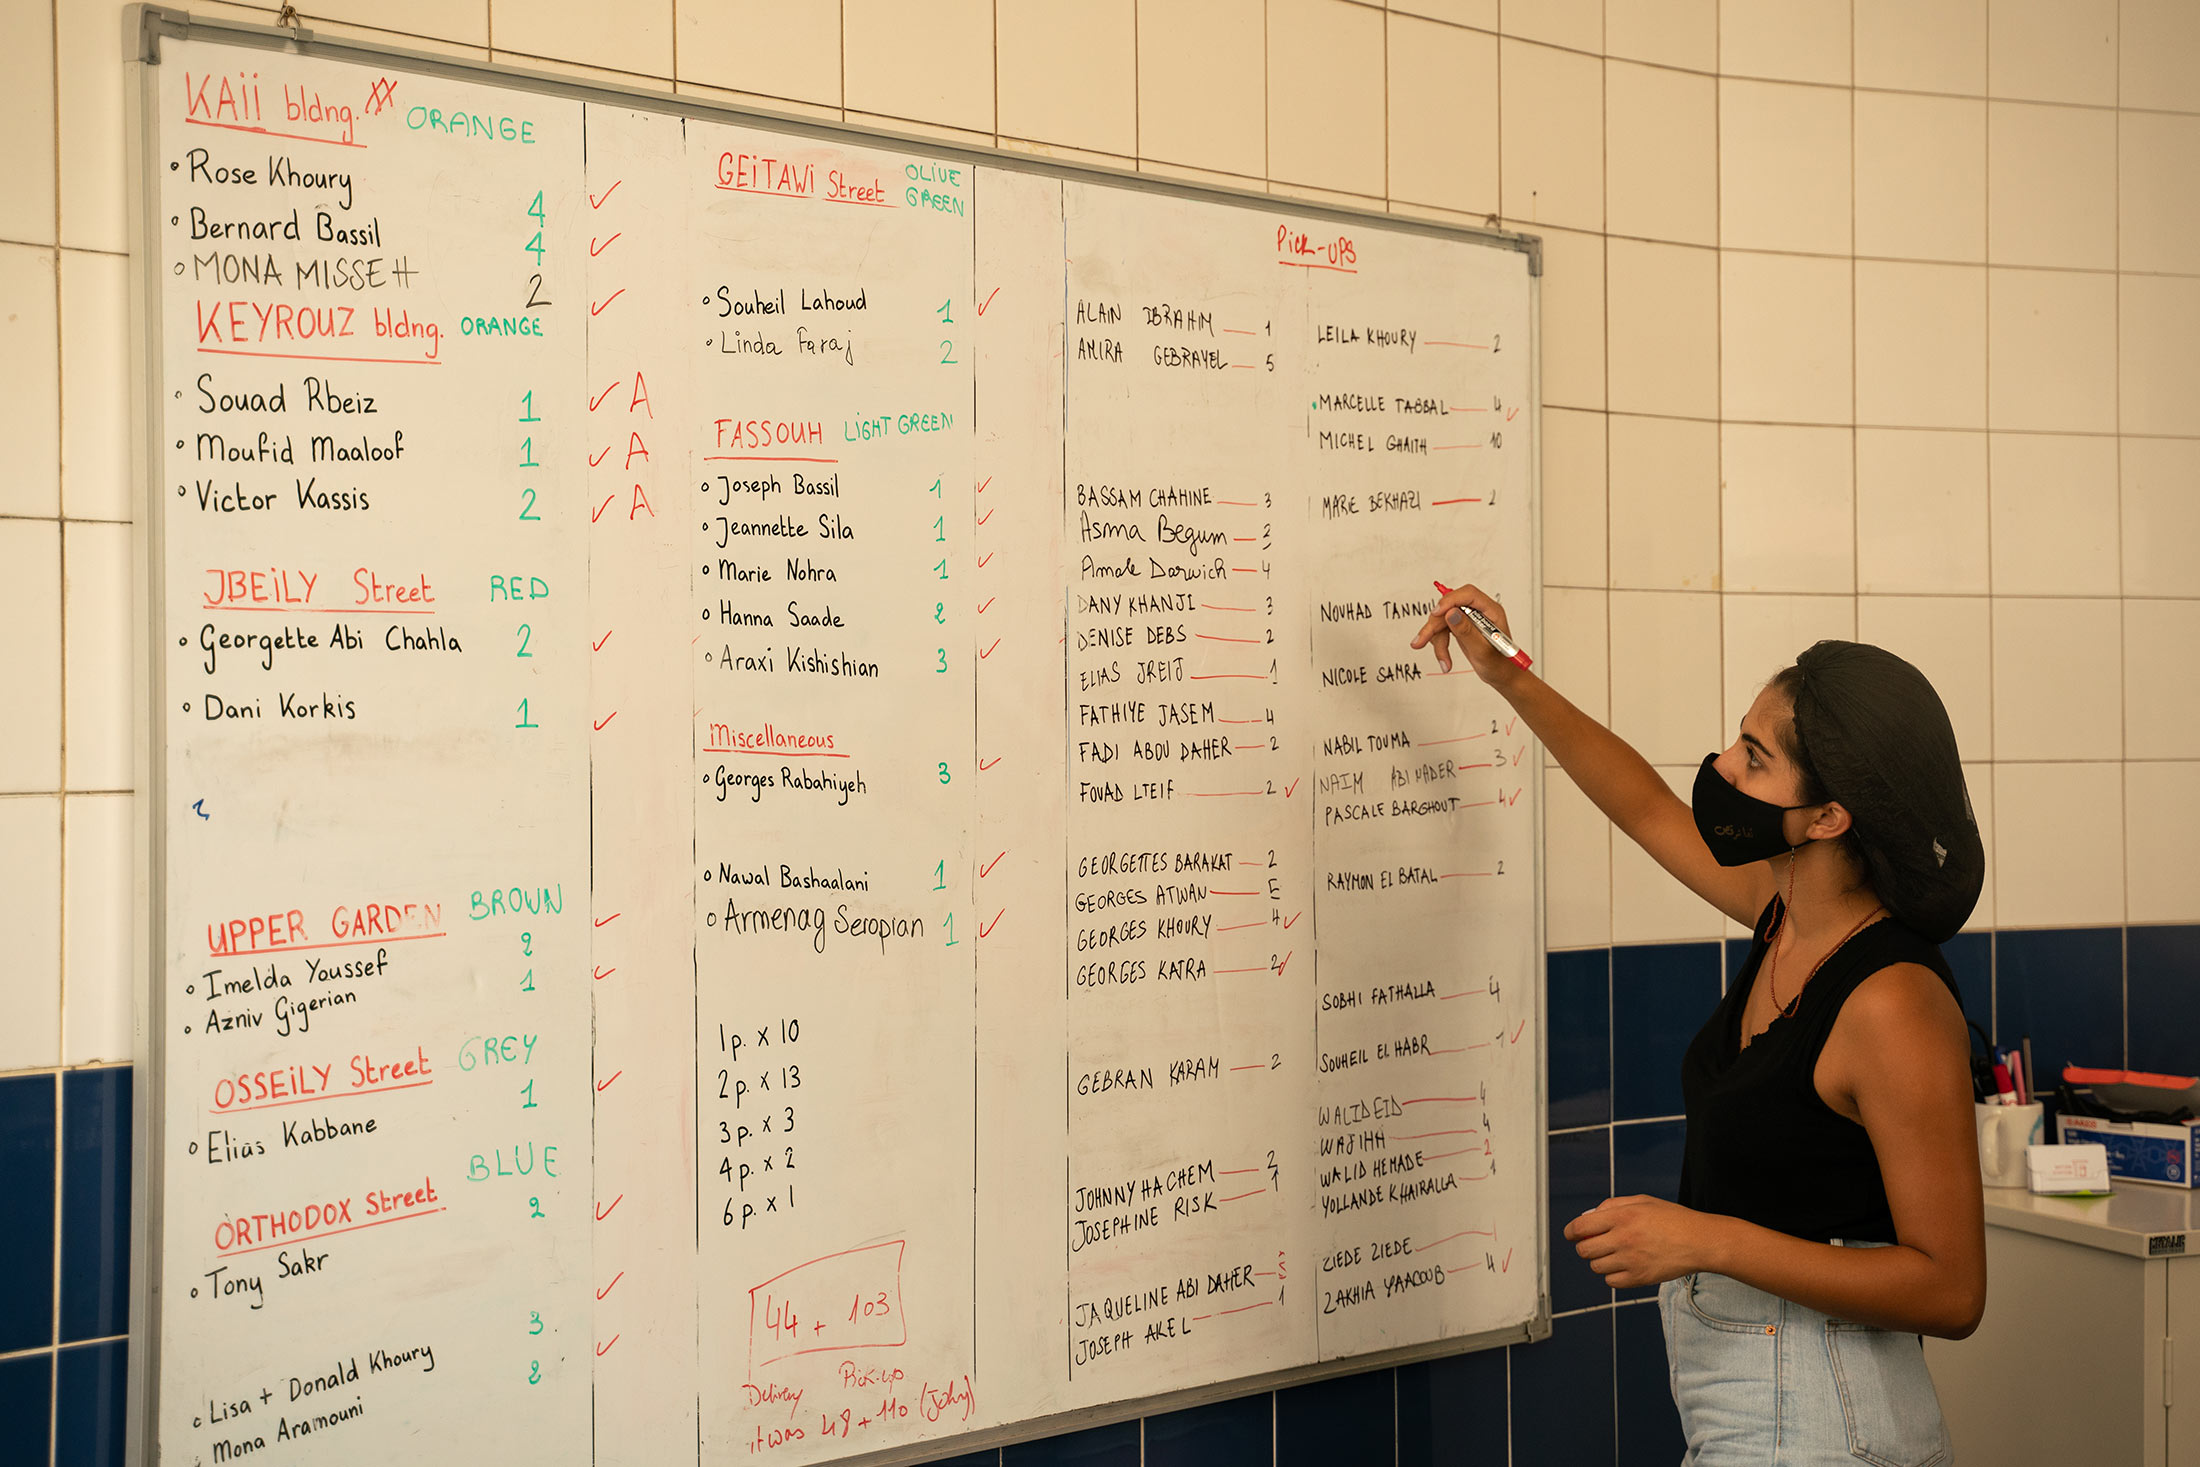 KAii bldng. ORANGE
Rose Khoury 4 ✓
Bernard Bassil 4 ✓
MONA MISSEH 2 ✓
KEYROUZ bldng. ORANGE
Souad Rbeiz 1 ✓ A
Moufid Maaloof 1 ✓ A
Victor Kassis 2 ✓ A
JBEiLY Street RED
Georgette Abi Chahla 2 ✓
Dani Korkis 1 ✓
UPPER GARDEN BROWN
Imelda Youssef 2 ✓
Azniv Gigerian 1 ✓
OSSEiLY Street GREY
Elias Kabbane 1 ✓
ORTHODOX Street BLUE
Tony Sakr 2 ✓
Lisa + Donald Khoury 3 ✓
Mona Aramouni 2 ✓
GEiTAWi Street OLiVE GREEN
Souheil Lahoud 1 ✓
Linda Faraj 2
FASSOUH LiGHT GREEN
Joseph Bassil 1 ✓
Jeannette Sila 1 ✓
Marie Nohra 1 ✓
Hanna Saade 2 ✓
Araxi Kishishian 3 ✓
Miscellaneous
Georges Rabahiyeh 3 ✓
Nawal Bashaalani 1 ✓
Armenag Seropian 1 ✓
1 p. x 10
2 p. x 13
3 p. x 3
4 p. x 2
6 p. x 1
44 + 103
Delivery Pick-up
it was 48 + 110 (John)
PiCK-UPS
ALAIN IBRAHIM 1
AMIRA GEBRAYEL 5
BASSAM CHAHINE 3
Asma Begum 2
Amale Darwich 4
DANY KHANJI 3
DENISE DEBS 2
ELIAS JREIJ 1
FATHIYE JASEM 4
FADI ABOU DAHER 2
FOUAD LTEIF 2 ✓
GEORGETTES BARAKAT 2
GEORGES ATWAN
GEORGES KHOURY 4 ✓
GEORGES KATRA 2 ✓
GEBRAN KARAM 2
JOHNNY HACHEM 2
JOSEPHINE RISK 1
JAQUELINE ABI DAHER
JOSEPH AKEL 1
LEILA KHOURY 2
MARCELLE TABBAL 4 ✓
MICHEL GHAITH 10
MARIE BEKHAZI 2
NOUHAD
NICOLE SAMRA
NABIL TOUMA 2 ✓
NAIM ABI NADER 3 ✓
PASCALE BARGHOUT 4 ✓
RAYMON EL BATAL 2
SOBHI FATHALLA 4
SOUHEIL EL HABR 1 ✓
WALID EID 4
WAJIHH 4
WALID HEMADE 2
YOLLANDE KHAIRALLA 1
ZIEDE ZIEDE 1
ZAKHIA YAACOUB 4 ✓